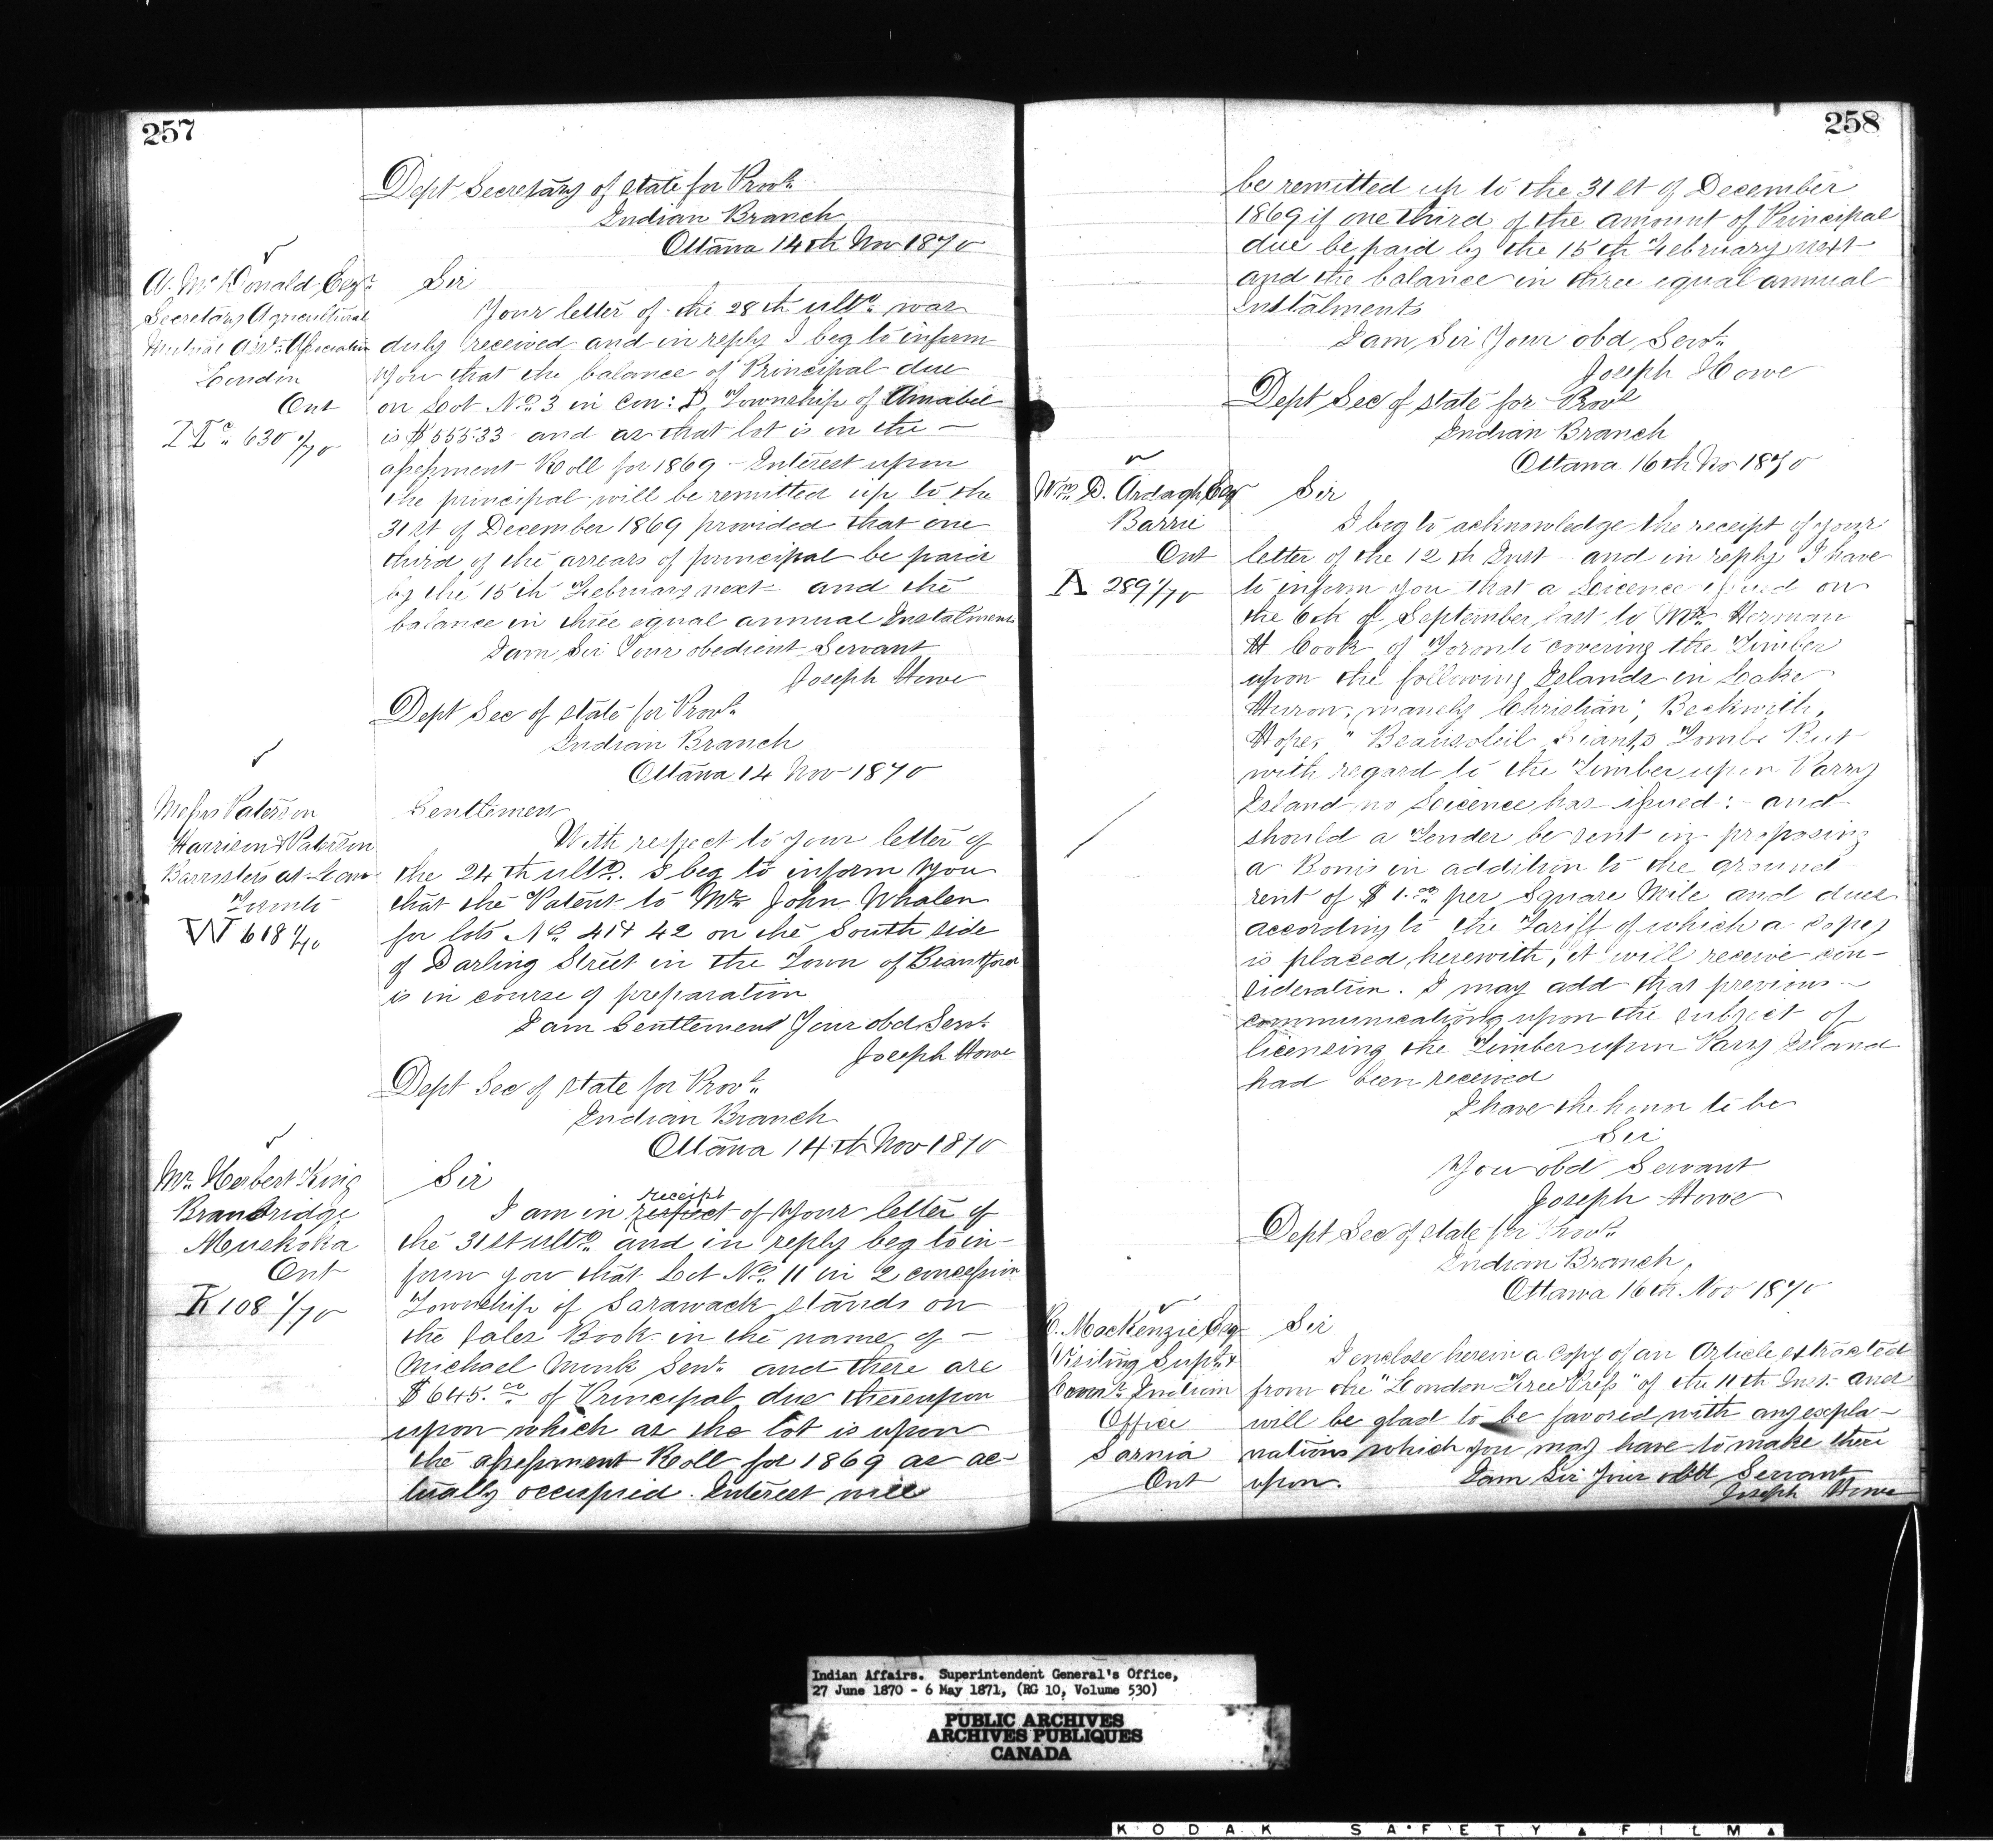 257
Dept Secretary of state for Provs
Indian Branch
Ottawa 14th Nov 1870
A. McDonald Esqr
Secretary Agricultural
Mutual Ass. Association
London
Ont
630 1/70
Sir
Your letter of the 28th ulto. was
duly received and in reply I beg to inform
You that the balance of Principal due
on Lot No. 3 in Con: D, Township of Amabel
is $555.33 and as that lot is on the —
assessment Roll for 1869 – Interest upon
the principal will be remitted up to the
31st of December 1869 provided that one
third of the arrears of principal be paid
by the 15th February next and the
balance in three equal annual Instalments
I am Sir Your obedient Servant
Joseph Howe
Dept Sec of state for Provs
Indian Branch
Ottawa 14 Nov 1870
Messrs Paterson
Harrison & Paterson
Barristers at Law
Toronto
W 618 1/70
Gentlemen
With respect to your letter of
the 24th ulto. I beg to inform You
that the Patent to Mr John Whalen
for lots No. 41 & 42 on the South side
of Darling Street in the Town of Brantford
is in course of preparation
I am Gentlemen Your obd Sert.
Joseph Howe
Dept Sec of state for Provs
Indian Branch
Ottawa 14th Nov 1870
Mr. Herbert King
Bracebridge
Muskoka
Ont
K 108 1/70
Sir
receipt
I am in respect of Your letter of
the 31st ulto. and in reply beg to in-
form you that Lot No. 11 in 2 concession
Township of Sarawack stands on
the Sales Book in the name of —
Michael Monk Senr. and there are
$645.00 of Principal due thereupon
upon which as the lot is upon
the assessment Roll for 1869 as ac-
tually occupied. Interest will
258
be remitted up to the 31st of December
1869 if one third of the amount of Principal
due be paid by the 15th February next
and the balance in three equal annual
Instalments
I am Sir Your obd Servt.
Joseph Howe
Dept Sec of state for Provs
Indian Branch
Ottawa 16th No 1870
Wm. D. Ardagh Esq
Barrie
Ont
A 289 1/70
Sir
I beg to acknowledge the receipt of your
letter of the 12th Inst – and in reply I have
to inform you that a Licence issued on
the 6th of September last to Mr. Herman
H Cook of Toronto covering the Timber
upon the following Islands in Lake
Huron, namely Christian, Beckwith,
Hope, " Beausoleil Giants Tomb But
with regard to the Timber upon Parry
Island no Licence has issued: – and
should a Tender be sent in proposing
a Bonus in addition to the ground
rent of $1.00 per Square Mile and dues
according to the Tariff of which a copy
is placed herewith, it will receive con-
sideration. I may add that previous —
communications upon the subject of
licensing the Timber upon Parry Island
had been received
I have the honor to be
Sir
Your obd Servant
Joseph Howe
Dept Sec of state for Provs
Indian Branch,
Ottawa 16th Nov 1870
R. MacKenzie Esq
Visiting Supt. &
Comr. Indian
Office
Sarnia
Ont
Sir
I enclose herein a copy of an Article extracted
from the "London Free Press" of the 11th Inst. and
will be glad to be favored with any expla-
nations which you may have to make there
upon. I am Sir Your obdt Servant
Joseph Howe
Indian Affairs. Superintendent General's Office,
27 June 1870 - 6 May 1871, (RG 10, Volume 530)
PUBLIC ARCHIVES
ARCHIVES PUBLIQUES
CANADA
KODAK SAFETY ▲ FILM ▲